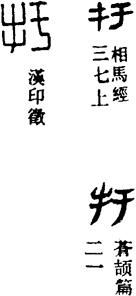 相馬經
三七上
蒼頡篇
二一
漢印徵